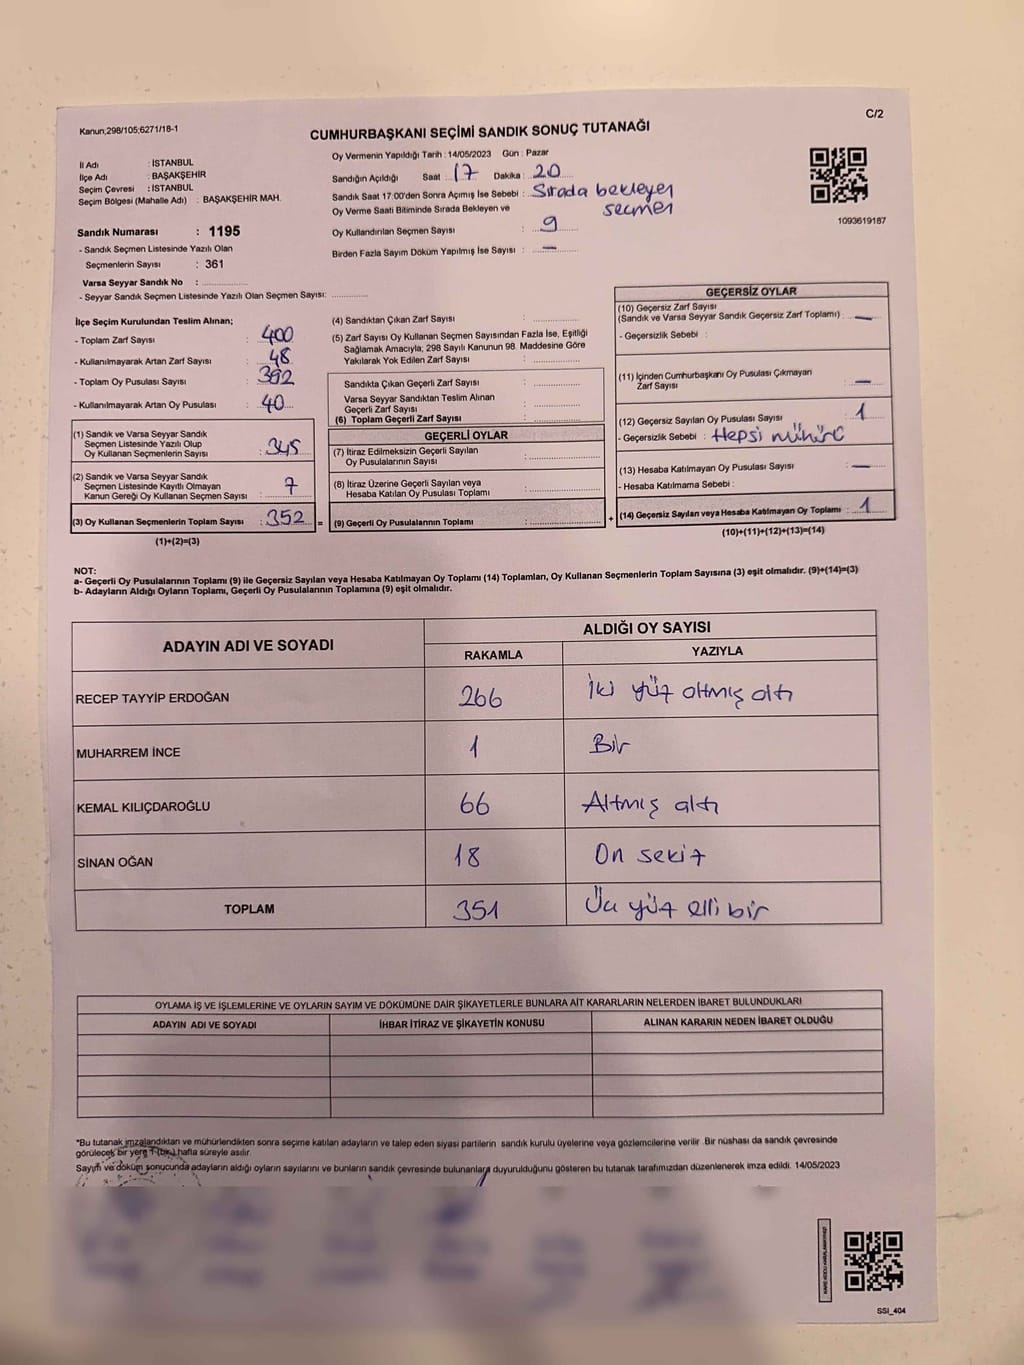 Kanun;298/105;6271/18-1
C/2
CUMHURBAŞKANI SEÇİMİ SANDIK SONUÇ TUTANAĞI
İl Adı : İSTANBUL
İlçe Adı : BAŞAKŞEHİR
Seçim Çevresi : İSTANBUL
Seçim Bölgesi (Mahalle Adı) : BAŞAKŞEHİR MAH.
Sandık Numarası : 1195
- Sandık Seçmen Listesinde Yazılı Olan
Seçmenlerin Sayısı : 361
Varsa Seyyar Sandık No :
- Seyyar Sandık Seçmen Listesinde Yazılı Olan Seçmen Sayısı:
Oy Vermenin Yapıldığı Tarih : 14/05/2023 Gün : Pazar
Sandığın Açıldığı Saat : 17 Dakika : 20
Sandık Saat 17:00'den Sonra Açımış İse Sebebi : Sırada bekleyen
Oy Verme Saati Bitiminde Sırada Bekleyen ve seçmen
Oy Kullandırılan Seçmen Sayısı : 9
Birden Fazla Sayım Döküm Yapılmış İse Sayısı : —
1093619187
İlçe Seçim Kurulundan Teslim Alınan;
- Toplam Zarf Sayısı : 400
- Kullanılmayarak Artan Zarf Sayısı : 48
- Toplam Oy Pusulası Sayısı : 392
- Kullanılmayarak Artan Oy Pusulası : 40
(1) Sandık ve Varsa Seyyar Sandık
Seçmen Listesinde Yazılı Olup
Oy Kullanan Seçmenlerin Sayısı : 345
(2) Sandık ve Varsa Seyyar Sandık
Seçmen Listesinde Kayıtlı Olmayan
Kanun Gereği Oy Kullanan Seçmen Sayısı : 7
(3) Oy Kullanan Seçmenlerin Toplam Sayısı : 352 =
(1)+(2)=(3)
(4) Sandıktan Çıkan Zarf Sayısı :
(5) Zarf Sayısı Oy Kullanan Seçmen Sayısından Fazla İse, Eşitliği
Sağlamak Amacıyla; 298 Sayılı Kanunun 98. Maddesine Göre
Yakılarak Yok Edilen Zarf Sayısı :
Sandıkta Çıkan Geçerli Zarf Sayısı :
Varsa Seyyar Sandıktan Teslim Alınan
Geçerli Zarf Sayısı :
(6) Toplam Geçerli Zarf Sayısı :
GEÇERLİ OYLAR
(7) İtiraz Edilmeksizin Geçerli Sayılan
Oy Pusulalarının Sayısı :
(8) İtiraz Üzerine Geçerli Sayılan veya
Hesaba Katılan Oy Pusulası Toplamı :
(9) Geçerli Oy Pusulalarının Toplamı : +
GEÇERSİZ OYLAR
(10) Geçersiz Zarf Sayısı
(Sandık ve Varsa Seyyar Sandık Geçersiz Zarf Toplamı) : —
- Geçersizlik Sebebi :
(11) İçinden Cumhurbaşkanı Oy Pusulası Çıkmayan
Zarf Sayısı : —
(12) Geçersiz Sayılan Oy Pusulası Sayısı : 1
- Geçersizlik Sebebi : Hepsi
(13) Hesaba Katılmayan Oy Pusulası Sayısı : —
- Hesaba Katılmama Sebebi :
(14) Geçersiz Sayılan veya Hesaba Katılmayan Oy Toplamı : 1
(10)+(11)+(12)+(13)=(14)
NOT:
a- Geçerli Oy Pusulalarının Toplamı (9) ile Geçersiz Sayılan veya Hesaba Katılmayan Oy Toplamı (14) Toplamları, Oy Kullanan Seçmenlerin Toplam Sayısına (3) eşit olmalıdır. (9)+(14)=(3)
b- Adayların Aldığı Oyların Toplamı, Geçerli Oy Pusulalarının Toplamına (9) eşit olmalıdır.
ADAYIN ADI VE SOYADI
ALDIĞI OY SAYISI
RAKAMLA YAZIYLA
RECEP TAYYİP ERDOĞAN 266 İki yüz altmış altı
MUHARREM İNCE 1 Bir
KEMAL KILIÇDAROĞLU 66 Altmış altı
SİNAN OĞAN 18 On sekiz
TOPLAM 351 Üç yüz elli bir
OYLAMA İŞ VE İŞLEMLERİNE VE OYLARIN SAYIM VE DÖKÜMÜNE DAİR ŞİKAYETLERLE BUNLARA AİT KARARLARIN NELERDEN İBARET BULUNDUKLARI
ADAYIN ADI VE SOYADI İHBAR İTİRAZ VE ŞİKAYETİN KONUSU ALINAN KARARIN NEDEN İBARET OLDUĞU
*Bu tutanak imzalandıktan ve mühürlendikten sonra seçime katılan adayların ve talep eden siyasi partilerin sandık kurulu üyelerine veya gözlemcilerine verilir .Bir nüshası da sandık çevresinde
görülecek bir yere 1 (bir) hafta süreyle asılır.
Sayım ve döküm sonucunda adayların aldığı oyların sayılarını ve bunların sandık çevresinde bulunanlara duyurulduğunu gösteren bu tutanak tarafımızdan düzenlenerek imza edildi. 14/05/2023
SSİ_404